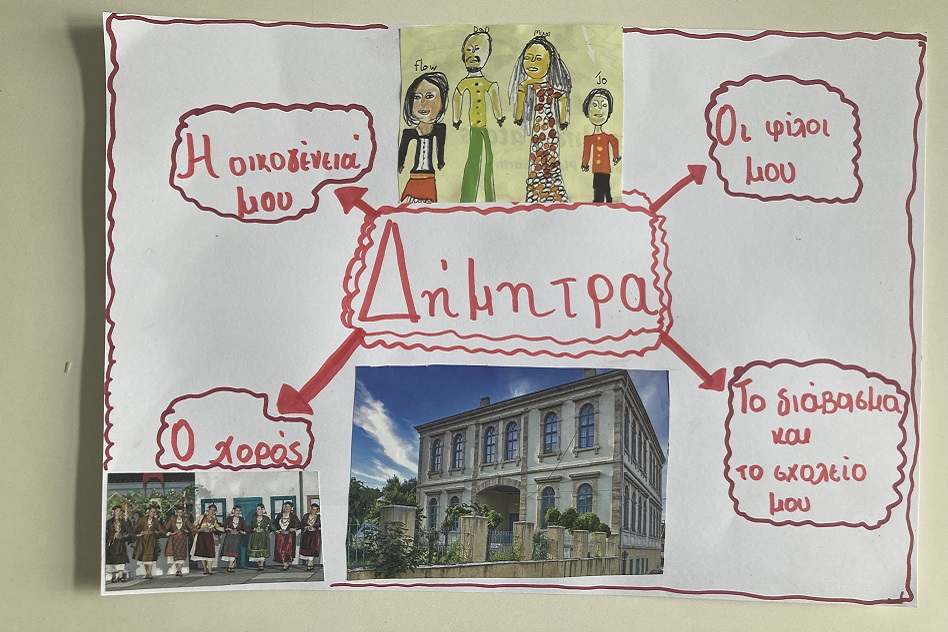 Dad
Mum
Flow
Jo
Η οικογένειά
μου
Οι φίλοι
μου
Δήμητρα
Ο χορός
Το διάβασμα
και
το σχολείο
μου